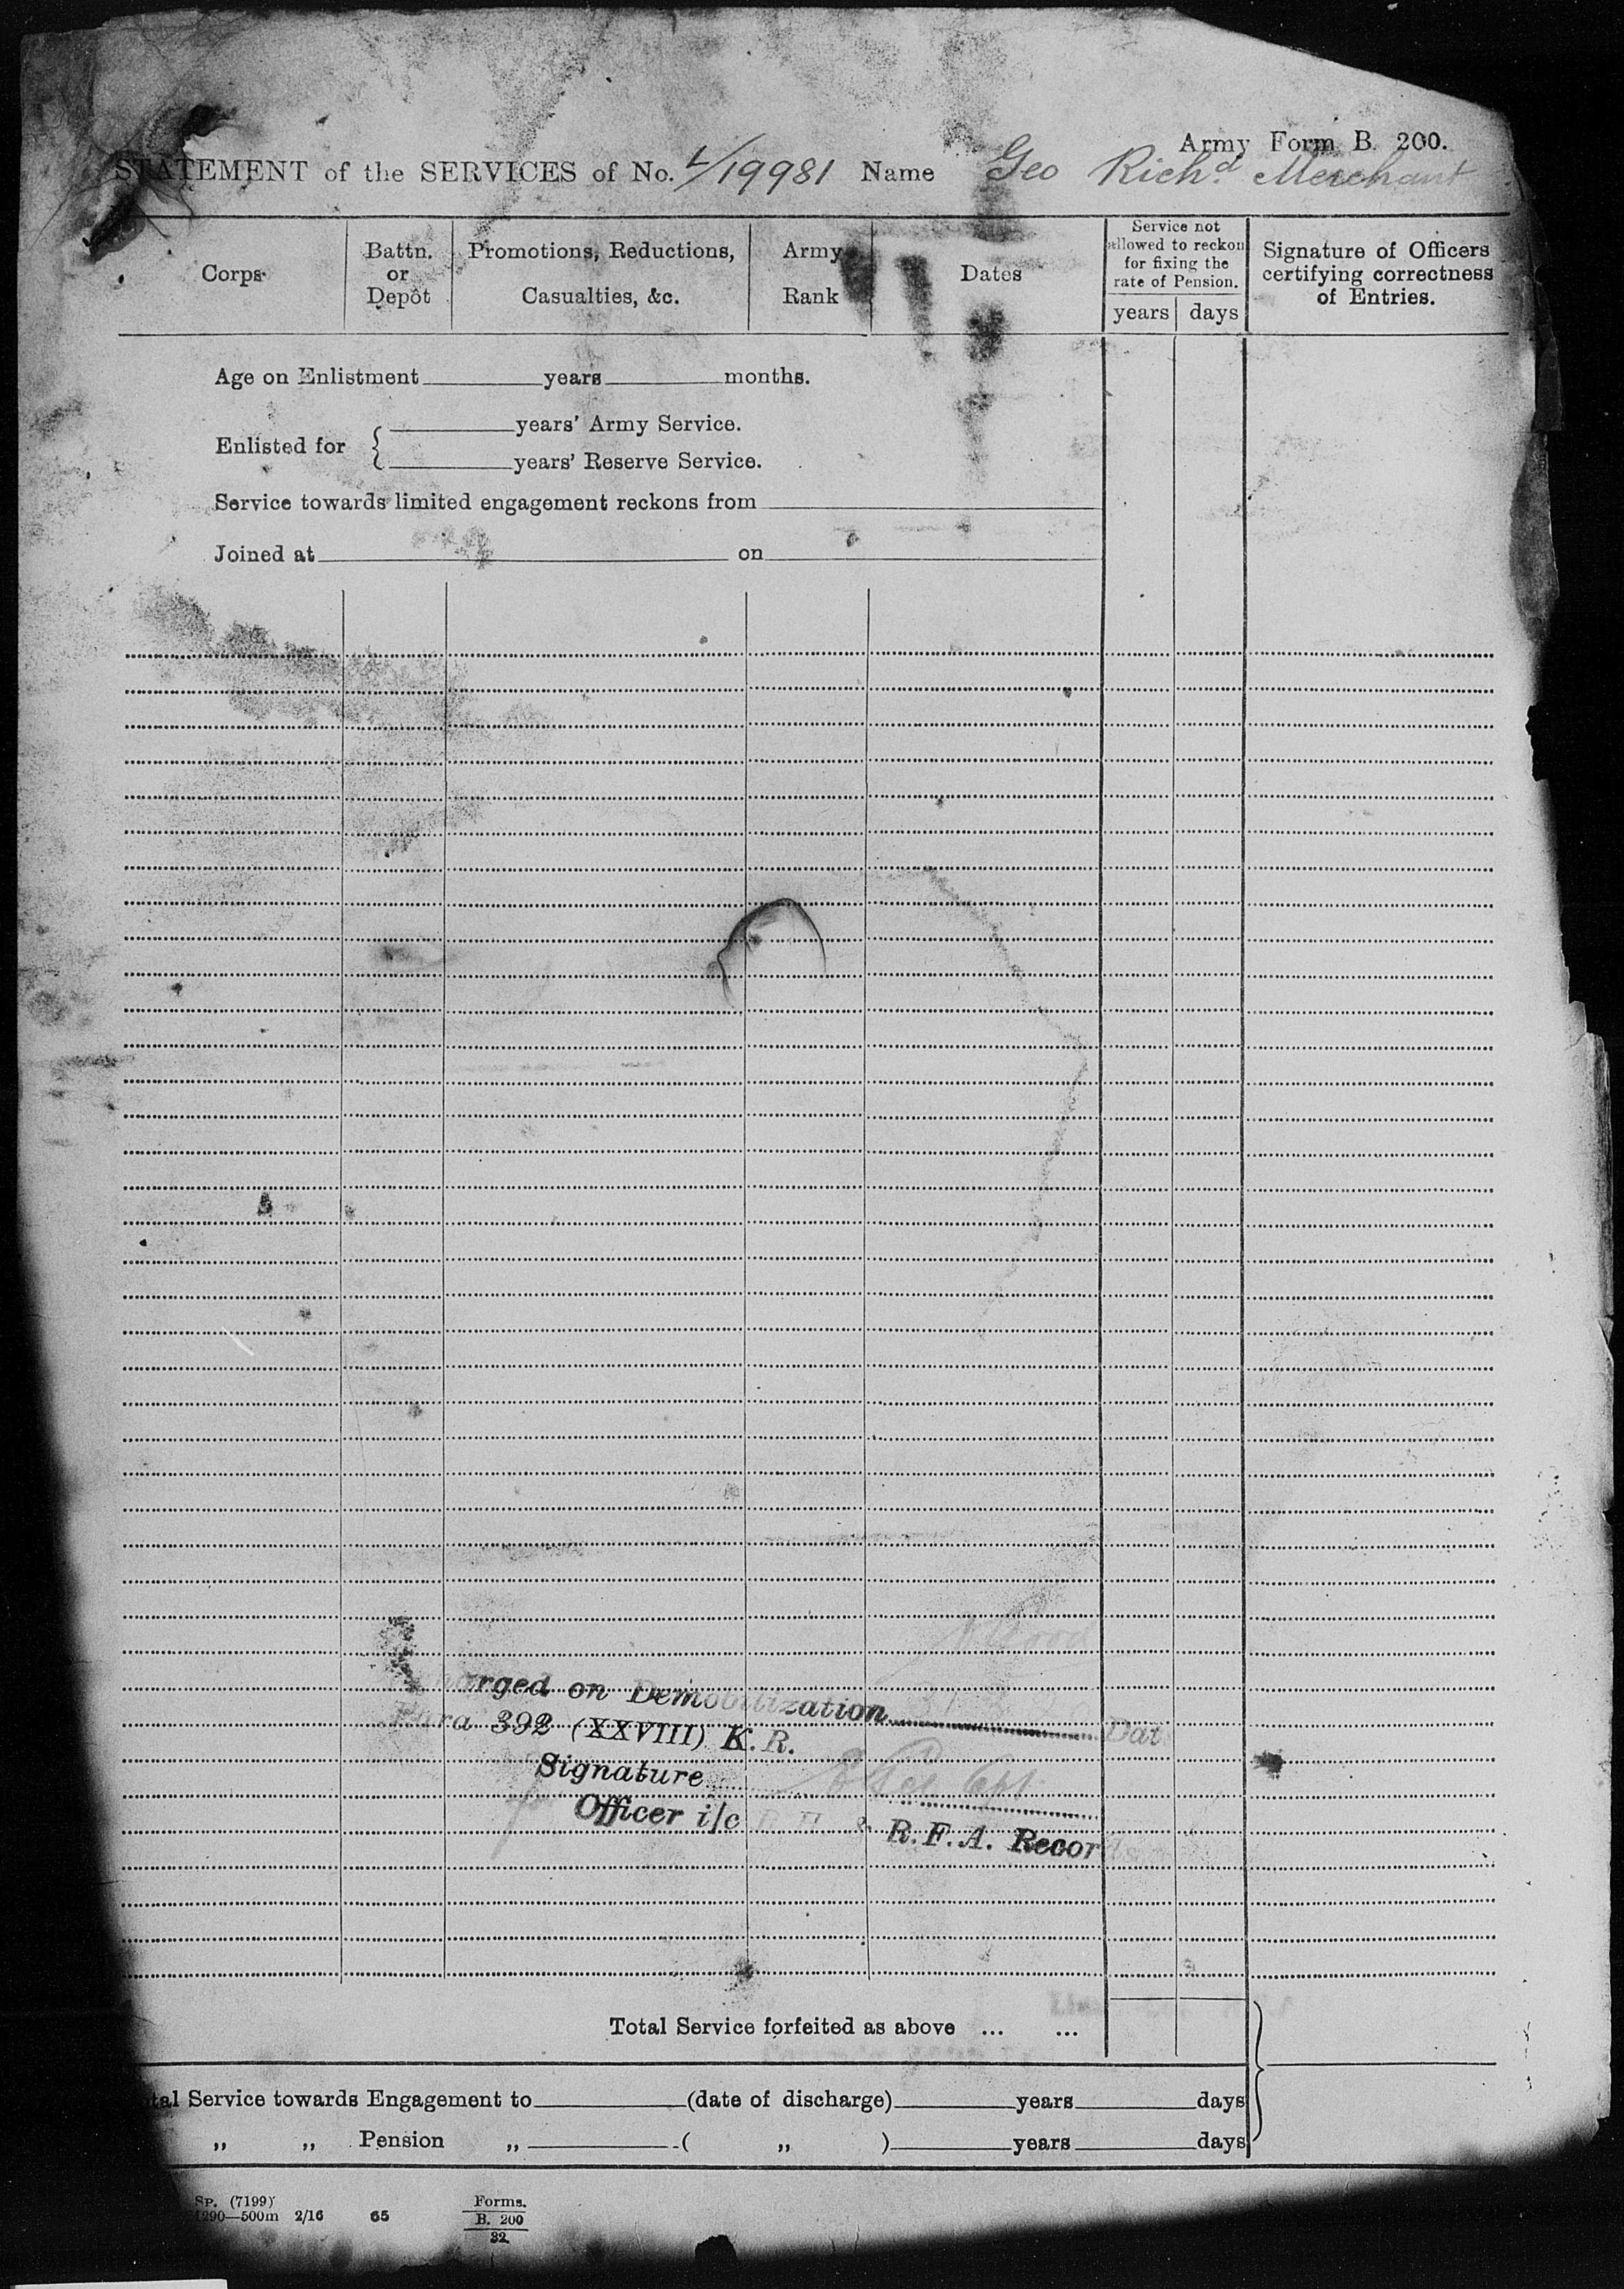 Army Form B. 200.
STATEMENT of the SERVICES of No. L/19981 Name Geo Richd Merchant
Corps
Battn.
or
Depôt
Promotions, Reductions,
Casualties, &c.
Army
Rank
Dates
Service not
allowed to reckon
for fixing the
rate of Pension.
years days
Signature of Officers
certifying correctness
of Entries.
Age on Enlistment years months.
Enlisted for { years' Army Service.
years' Reserve Service.
Service towards limited engagement reckons from
Joined at on
arged on Demobilization
Para 392 (XXVIII) K. R. Dat
Signature Capt
for Officer i/c R. H. & R. F. A. Records
Total Service forfeited as above ... ...
tal Service towards Engagement to (date of discharge) years days
„ „ Pension „ ( „ ) years days
Sp. (7199)
1290—500m 2/16 65
Forms.
B. 200
32.